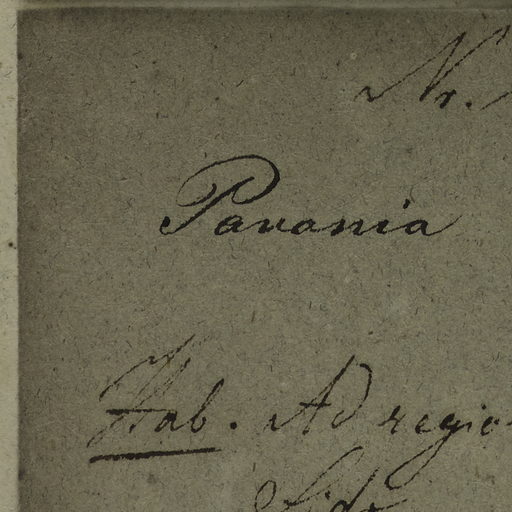 Nr.
Pavania
Hab. Ad regio